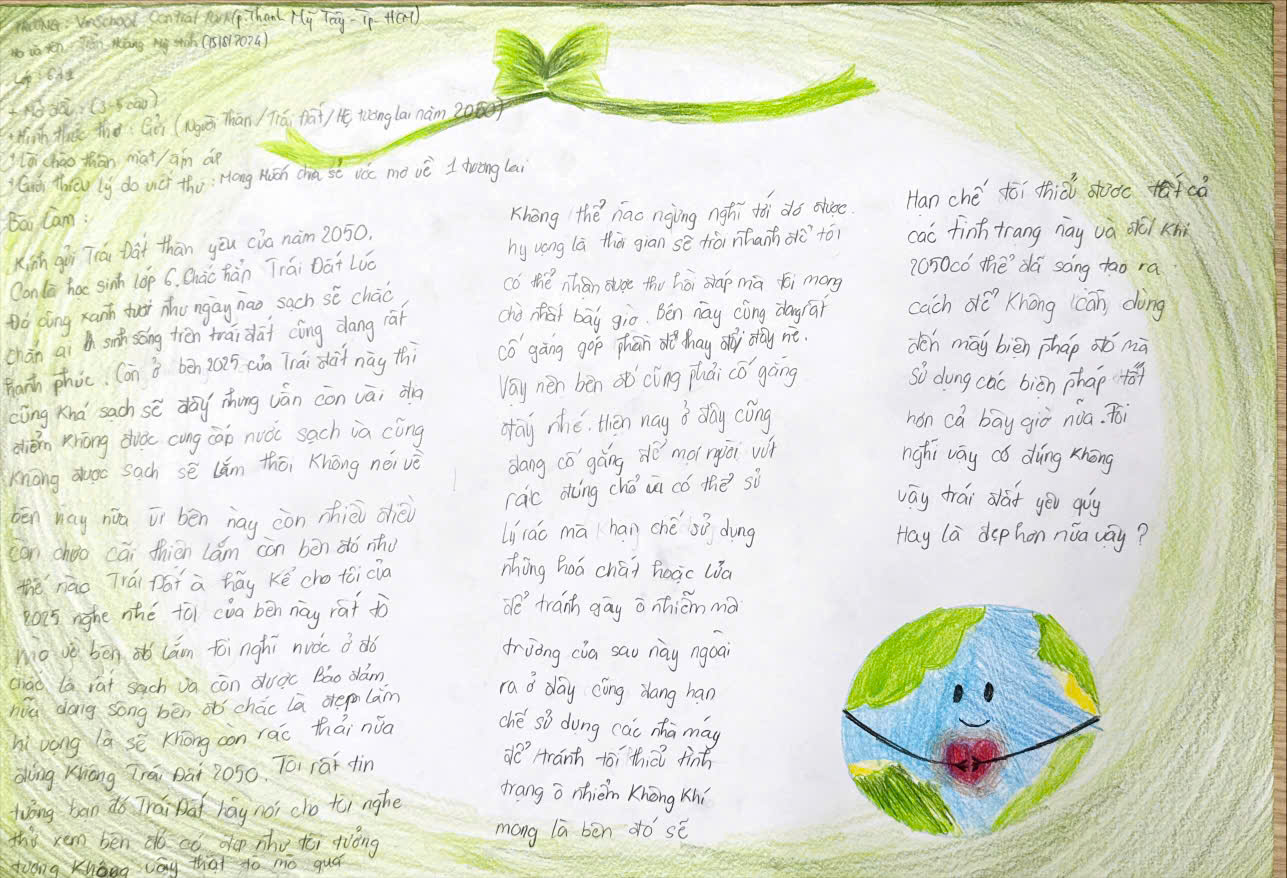 TRƯỜNG : Vinschool Central Park (p. Thạnh Mỹ Tây - Tp. HCM)
Họ và tên : Trần Hoàng Mỹ (15/8/2024)
Lớp : 6A1
+ Mở đầu : (3-5 câu)
+ Hình thức thơ : Gửi (Người Thân / Trái Đất / Hệ tương lai năm 2050)
+ Lời chào thân mật / ấm áp
+ Giới thiệu lý do viết thư : Mong Muốn chia sẻ ước mơ về 1 tương lai
Bài Làm :
Kính gửi Trái Đất thân yêu của năm 2050.
Con là học sinh lớp 6. Chắc hẳn Trái Đất Lúc
Đó cũng xanh tươi như ngày nào sạch sẽ chắc
chắn ai sinh sống trên trái đất cũng đang rất
hạnh phúc. Còn ở bên 2025 của Trái đất này thì
cũng Khá sạch sẽ đấy nhưng vẫn còn vài địa
điểm Không được cung cấp nước sạch và cũng
Không được sạch sẽ lắm thôi Không nói về
bên này nữa ừ bên này còn nhiều điều
cần chưa cãi thiện lắm còn bên đó như
thế nào Trái Đất à hãy Kể cho tôi của
2025 nghe nhé tôi của bên này rất tò
mò về bên đó lắm tôi nghĩ nước ở đó
chắc là rất sạch và còn được Bảo đảm
nữa dòng sông bên đó chắc là đẹp lắm
hi vọng là sẽ Không còn rác thải nữa
đúng Không Trái Đất 2050. Tôi rất tin
tưởng bạn đó Trái Đất hãy nói cho tôi nghe
thử xem bên đó có đẹp như tôi tưởng
tượng Không vậy thật tò mò quá
Không thể nào ngừng nghĩ tới đó được.
hy vọng là thời gian sẽ trôi nhanh để tôi
có thể nhận được thư hồi đáp mà tôi mong
chờ nhất bây giờ. Bên này cũng đang rất
cố gắng góp phần để thay đổi đây nè.
Vậy nên bên đó cũng phải cố gắng
đấy nhé. Hiện nay ở đây cũng
đang cố gắng để mọi người vứt
rác đúng chỗ và có thể sử
lý rác mà hạn chế sử dụng
những hoá chất hoặc lửa
để tránh gây ô nhiễm mô
trường của sau này ngoài
ra ở đây cũng đang hạn
chế sử dụng các nhà máy
để tránh tối thiểu tình
trạng ô nhiễm Không Khí
mong là bên đó sẽ
Hạn chế tối thiểu được tất cả
các tình trạng này và đôi Khi
2050 có thể đã sáng tạo ra
cách để Không cần dùng
đến mấy biện pháp đó mà
sử dụng các biện pháp tốt
hơn cả bây giờ nữa. Tôi
nghĩ vậy có đúng Không
vậy trái đất yêu quý
Hay là đẹp hơn nữa vậy ?